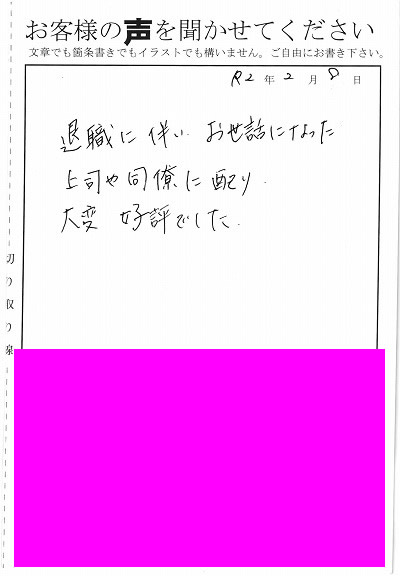 お客様の声を聞かせてください
文章でも箇条書きでもイラストでも構いません。ご自由にお書き下さい。
R2年2月8日
退職に伴い お世話になった
上司や同僚に配り
大変 好評でした。
切り取り線